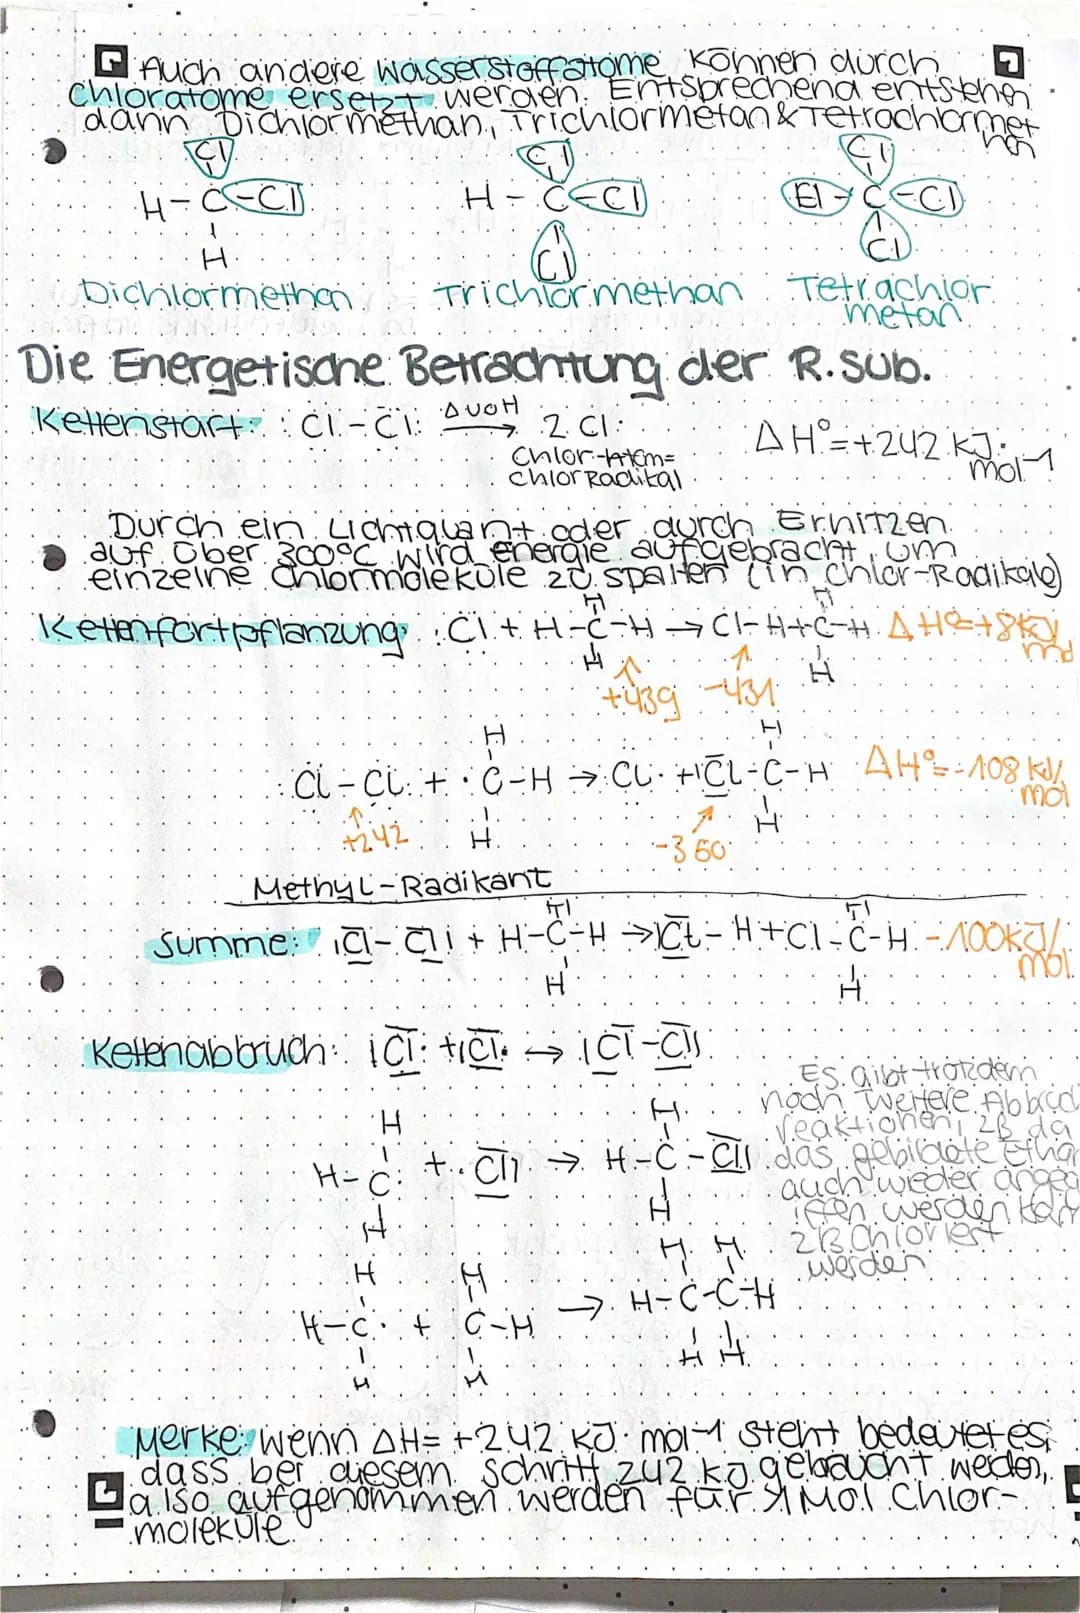 Auch andere Wasserstoffatome können durch
Chloratome ersetzt werden. Entsprechend entstehen
dann Dichlormethan, Trichlormetan & Tetrachlormet
han
Cl
H-C-Cl
H
Dichlormethan
Cl
H-C-Cl
Cl
Trichlormethan
Cl
Cl-C-Cl
Cl
Tetrachlor
metan
Die Energetische Betrachtung der R.Sub.
Kettenstart: Cl-Cl → 2 Cl· ΔH°=+242 kJ·mol⁻¹
Chlor-Atom=
Chlor Radikal
Durch ein Lichtquant oder durch Erhitzen
auf über 300°C wird energie aufgebracht, um
einzelne Chlormoleküle zu spalten (in Chlor-Radikale)
H H
Kettenfortpflanzung: Cl + H-C-H → Cl-H + C-H ΔH°=+8 kJ/mol
H H
+439 -431
H H
Cl-Cl + ·C-H → Cl· + Cl-C-H ΔH°=-108 kJ/mol
H H
+242 -360
Methyl-Radikant
H H
Summe: Cl-Cl + H-C-H → Cl-H + Cl-C-H -100 kJ/mol
H H
Kettenabbruch: Cl· + Cl· → Cl-Cl
H H
H-C· + ·Cl → H-C-Cl
H H
Es gibt trotzdem
noch weitere Abbruch
reaktionen, zB da
das gebildete Ethan
auch wieder angegr
iffen werden kann
zB Chloriert
werden
H H H H
H-C· + C-H → H-C-C-H
H H H H
Merke: wenn ΔH= +242 kJ·mol-1 steht bedeutet es,
dass bei diesem Schritt 242 kJ gebraucht werden,
also aufgenommen werden für 1 Mol Chlor-
moleküle.